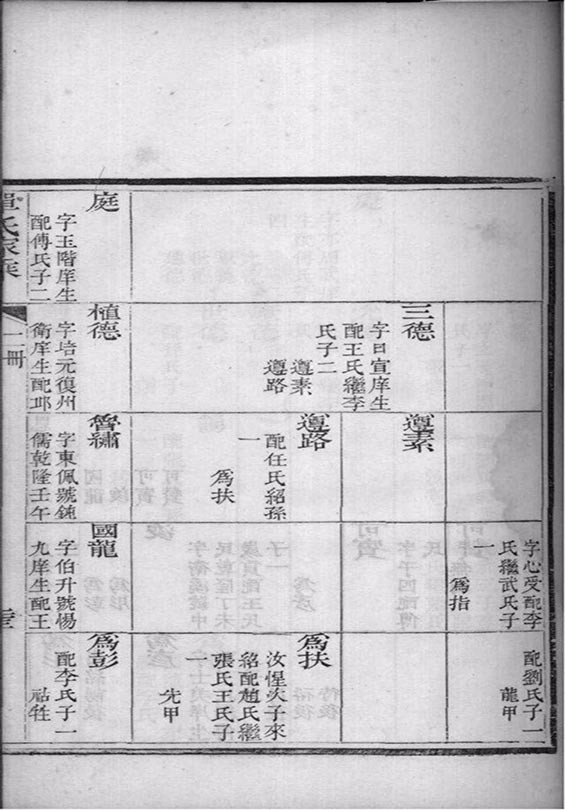 庭
字玉階庠生
配傅氏子二
三德
字曰宣庠生
配王氏繼李
氏子二
遵素
遵路
植德
字培元復州
衛庠生配邱
遵素
遵路
配任氏紹孫
一
爲扶
曾繡
字東佩號鈍
儒乾隆壬午
字心受配李
氏繼武氏子
一
爲指
國龍
字伯升號惕
九庠生配王
配劉氏子一
龍甲
爲扶
汝惺次子來
紹配趙氏繼
張氏王氏子
一
先甲
爲彭
配李氏子一
氏家乘
二冊